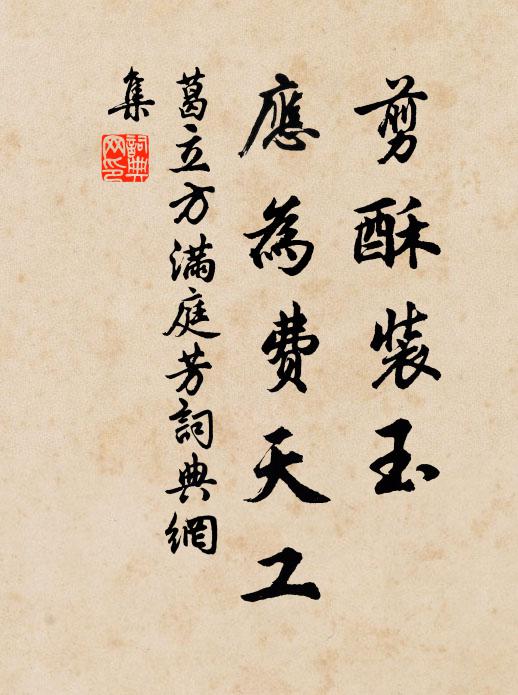 剪酥裝玉
應為費天工
葛立方滿庭芳詞典網
集
詞典
网印